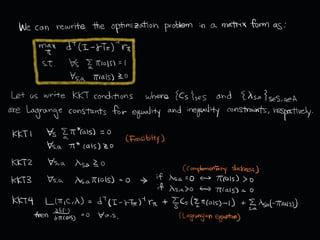 We can rewrite the optimization problem in a matrix form as:
max π dᵀ(I-γTπ)⁻¹ rπ
s.t. ∀s Σₐ π(a|s) = 1
∀s,a π(a|s) ≥ 0
Let us write KKT conditions where {Cs}s∈S and {λs,a}s∈S,a∈A
are Lagrange constants for equality and inequality constraints, respectively.
KKT1 ∀s Σₐ π*(a|s) = 0
∀s,a π*(a|s) ≥ 0
(Feasibility)
KKT2 ∀s,a λs,a ≥ 0
(Complementary slackness)
KKT3 ∀s,a λs,a π(a|s) = 0 → if λs,a = 0 ↔ π(a|s) > 0
if λs,a > 0 ↔ π(a|s) = 0
KKT4 L(π,c,λ) = dᵀ(I-γTπ)⁻¹ rπ + Σs Cs(Σₐ π(a|s)-1) + Σs,a λs,a(-π(a|s))
then ∂L(·)/∂π(a|s) = 0 ∀a,s.
(Lagrangian equation)